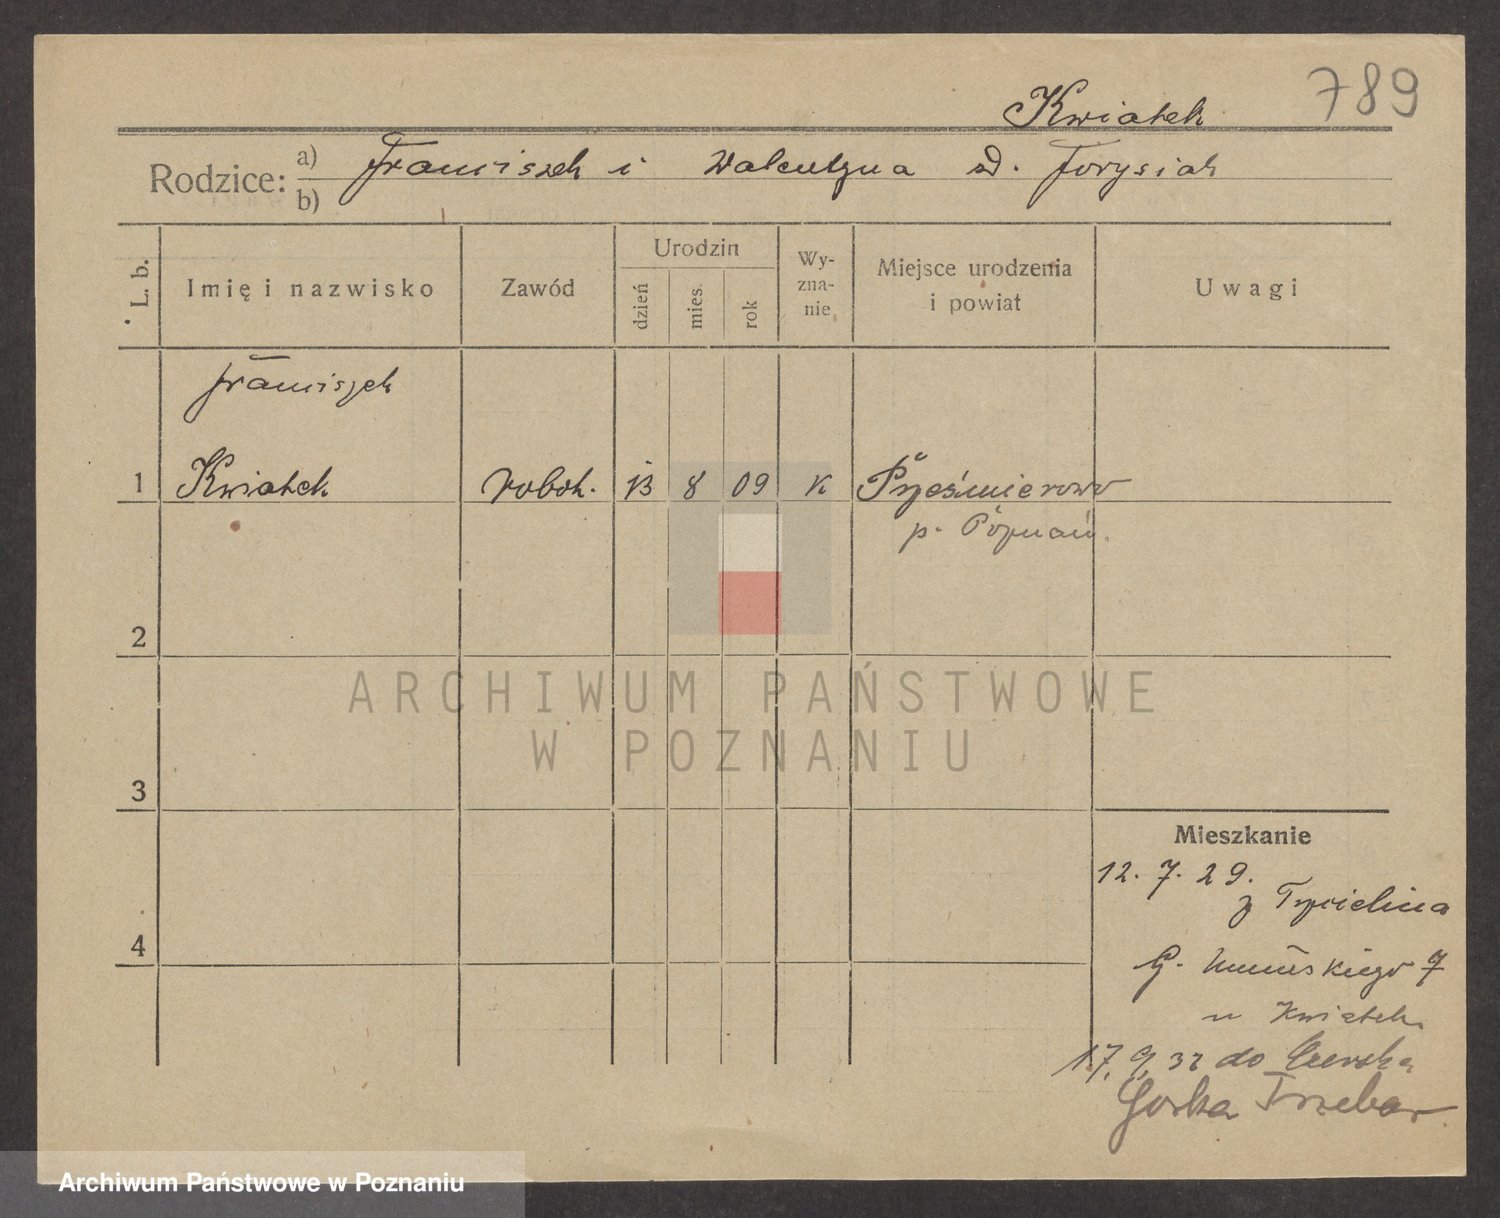 789
Kwiatek
Rodzice: a) Franciszek i Walentyna zd. Forysiak
b)
L. b. Imię i nazwisko Zawód Urodzin dzień mies. rok Wyznanie Miejsce urodzenia i powiat Uwagi
Franciszek
1 Kwiatek robotn. 13 8 09 K Przeźmierowo
p. Poznań.
2
ARCHIWUM PAŃSTWOWE
W POZNANIU
3
Mieszkanie
12. 7. 29.
z
4
G. 7
u Kwiatek
17. 9. 32 do
Górka
Archiwum Państwowe w Poznaniu